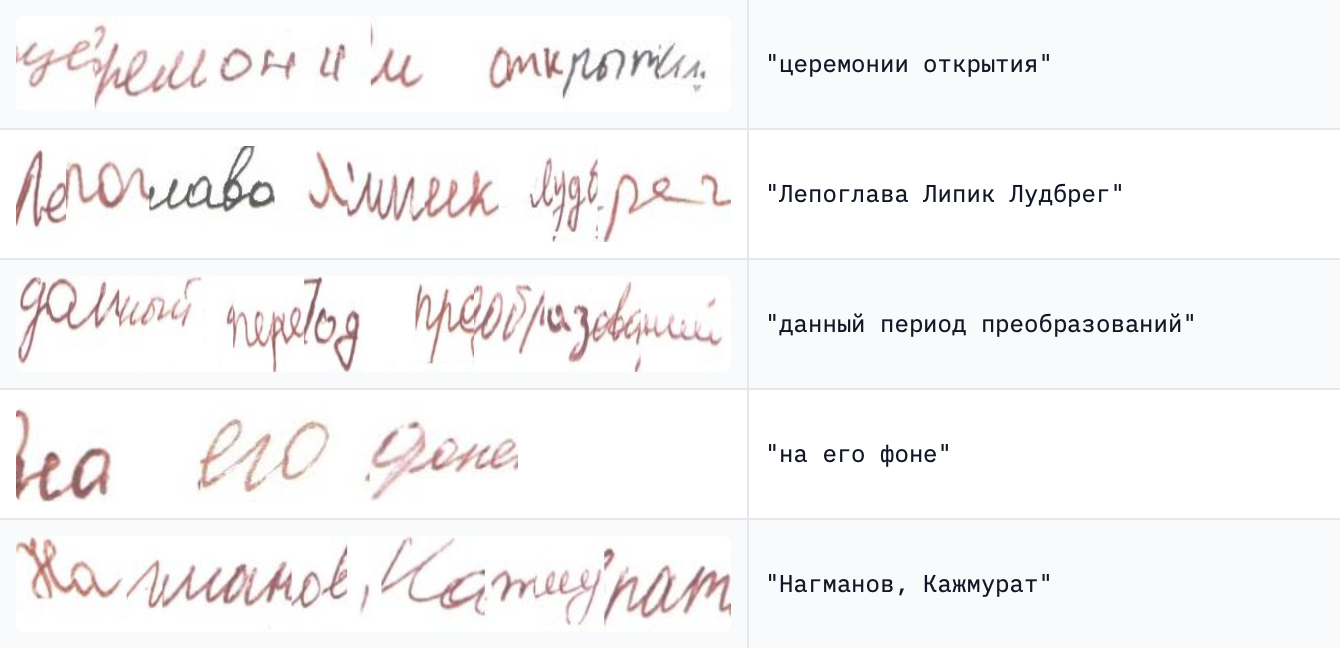 церемонии открытия "церемонии открытия"
Лепоглава Липик Лудбрег "Лепоглава Липик Лудбрег"
данный период преобразований "данный период преобразований"
на его фоне "на его фоне"
Нагманов, Кажмурат "Нагманов, Кажмурат"